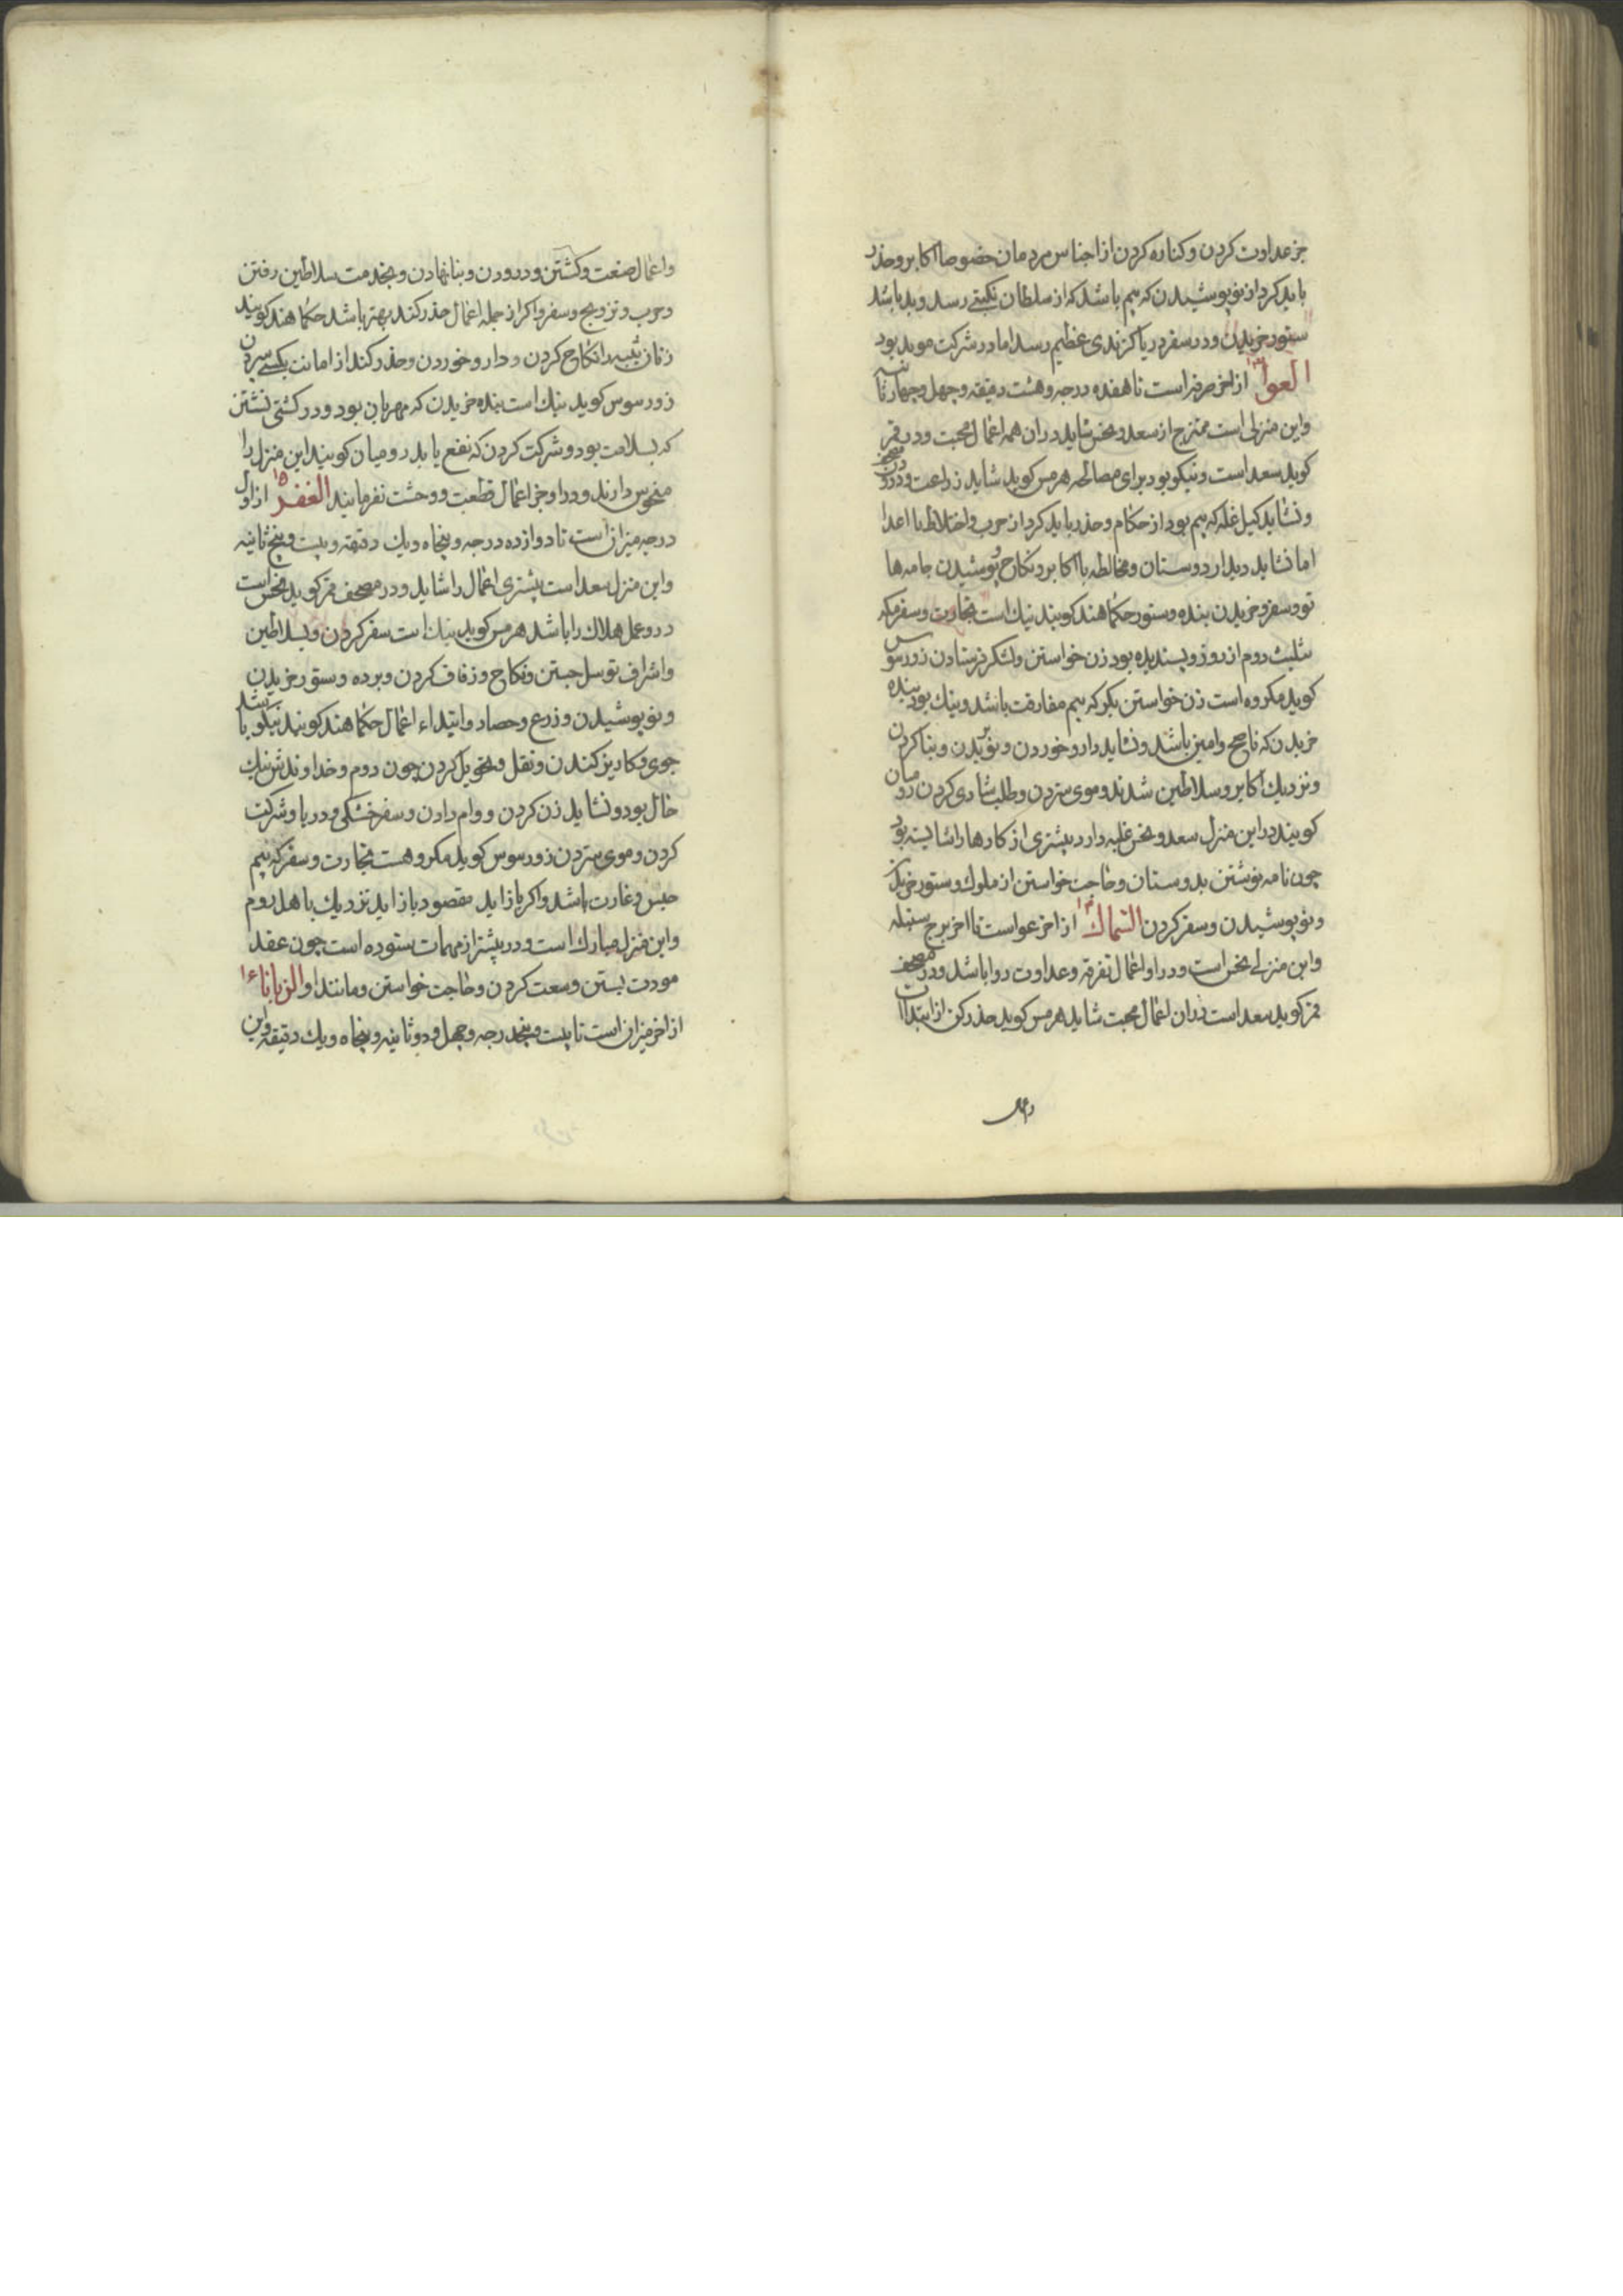 جز عداوت کردن و کناره کردن از اجناس مردمان خصوصا اکابر و حذر
باید کرد از نو پوشیدن که بیم باشد که از سلطان نکبتی رسد و بد باشد
ستور خریدن و در سفر دریا کزندی عظیم رسد اما در شرکت موید بود
العوا ۱۳ از اخر صرفه است تا هفده درجه و هشت دقیقه و چهل و چهار ثانیه
و این منزلی است ممتزج از سعد و نحس شاید دران همه اعمال محبت و در مصحف قمر
کوید سعد است و نیکو بود برای مصالحه هرمس کوید شاید زراعت و درودن
و نشاید کیل غله که بیم بود از حکام و حذر باید کرد از حرب و اختلاط با اعدا
اما نشاید دیدار دوستان و مخالطه با اکابر و نکاح و پوشیدن جامه ها
نو و سفر و خریدن بنده و ستور حکما هند کویند نیک است تجارت و سفر مکه
ثلیث دوم از روز و پسندیده بود زن خواستن و لشکر فرستادن زورسوس
کوید مکروه است زن خواستن بکر که بیم مفارقت باشد و نیک بود بنده
خریدن که ناصح و امین باشد و نشاید دارو خوردن و نو بریدن و بنا کردن
و نزدیک اکابر و سلاطین شدند و موی ستردن و طلب شادی کردن رومیان
کویند در این منزل سعد و نحس غلبه دارد بیشتری از کارها را شایسته بود
چون نامه نوشتن بدوستان و حاجت خواستن از ملوک و ستور خریدن
و نو پوشیدن و سفر کردن السماک ۱۴ از اخر عواست تا اخر برج سنبله
و این منزلی نحس است و در او اعمال تفرقه و عداوت روا باشد و در مصحف
قمر کوید سعد است دران اعمال محبت شاید هرمس کوید حذر کن از ابتداآت
و اعمال
و اعمال صنعت و کشتن و درودن و بنا نهادن و بخدمت سلاطین رفتن
و حرب و تزویج و سفر و اکر از جمله اعمال حذر کند بهتر باشد حکما هند کویند
زنان ثیبه را نکاح کردن و دارو خوردن و حذر کند از امانت بکسی سپردن
زورسوس کوید نیک است بنده خریدن که مهربان بود و در کشتی نشتن
که بسلامت بود و شرکت کردن که نفع یابد رومیان کویند این منزل را
منحوس دارند و در او جز اعمال قطعت و وحشت نفرمایند الغفر ۱۵ از اول
درجه میزان است تا دوازده درجه و پنجاه و یک دقیقه و بیست و پنج ثانیه
و این منزل سعد است بیشتری اعمال را شاید و در مصحف قمر کوید نحس است
درو عمل هلاک را باشد هرمس کوید نیک است سفر کردن و بسلاطین
و اشراف توسل جستن و نکاح و زفاف کردن و برده و ستور خریدن
و نو پوشیدن و زرع و حصاد و ابتداء اعمال حکما هند کویند نیکو باشد
جوی و کاریز کندن و نقل و تحویل کردن چون دوم و خداوندش نیک
حال بود و نشاید زن کردن و وام دادن و سفر خشکی و دریا و شرکت
کردن و موی ستردن زورسوس کوید مکروهست تجارت و سفر که بیم
حبس و غارت باشد و اکر باز اید مقصود باز اید نزدیک با هل روم
و این منزل مبارک است و در بیشتر از مهمات ستوده است چون عقد
مودت بستن و سعت کردن و حاجت خواستن و مانند او الزبانا ۱۶
از اخر میزان است تا بیست و پنجدرجه و چهل و دو ثانیه و پنجاه و یک دقیقه و این